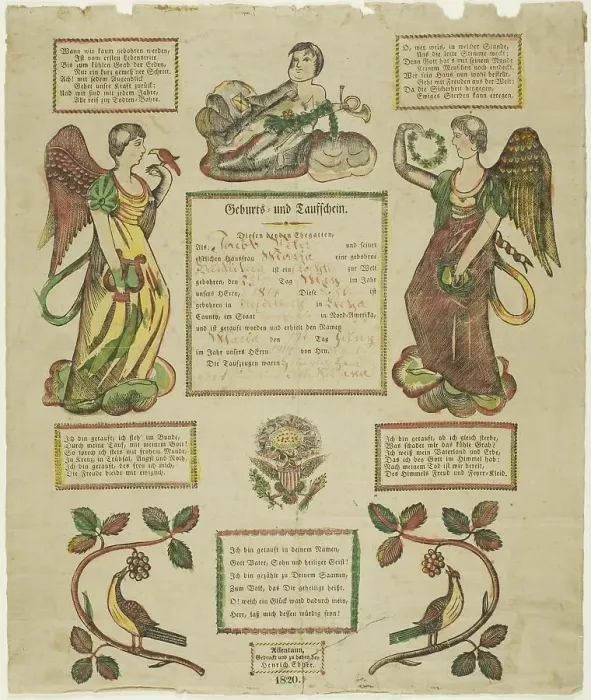 Wann wir kaum gebohren werden,
Ist vom ersten Lebenstritt
Bis zum kühlen Grab der Erden,
Nur ein kurz gemeß'ner Schritt,
Ach! mit jedem Augenblick
Gehet unsre Kraft zurück;
Und wir sind mit jedem Jahre,
Alle reif zur Todten-Bahre.
O, wer weis, in welcher Stunde,
Uns die letzte Stimme weckt;
Denn Gott hat's mit seinem Munde
Keinem Menschen noch entdeckt.
Wer sein Haus nun wohl bestellt,
Geht mit Freuden aus der Welt;
Da die Sicherheit hingegen,
Ewiges Sterben kann erregen.
Geburts- und Taufschein.
Diesen beyden Ehegatten,
Als: und seiner
ehlichen Hausfrau Maria eine gebohrne
ist ein zur Welt
gebohren, den Tag im Jahr
unsers HErrn, Diese ist
gebohren in in
County, im Staat in Nord-Amerika,
und ist getauft worden und erhielt den Namen
Maria den Tag
im Jahr unsers HErrn von Hrn.
Die Taufzeugen waren
Ich bin getauft; ich steh' im Bunde,
Durch meine Tauf, mit meinem Gott!
So sprech ich stets mit frohem Munde,
In Kreuz, in Trübsal, Angst und Noth.
Ich bin getauft, des freu ich mich,
Die Freude bleibe mir ewiglich.
Ich bin getauft, ob ich gleich sterbe,
Was schadet mir das kühle Grab?
Ich weiß mein Vaterland und Erbe,
Das ich bey Gott im Himmel hab:
Nach meinem Tod ist mir bereit,
Des Himmels Freud und Feyer-Kleid.
Ich bin getauft in deinem Namen,
Gott Vater, Sohn und heiliger Geist!
Ich bin gezählt zu Deinem Saamen,
Zum Volk, das Dir geheiligt heißt.
O! welch ein Glück ward dadurch mein,
Herr, laß mich dessen würdig seyn!
Allentaun,
Gedruckt und zu haben bey
Henrich Ebner.
1820.